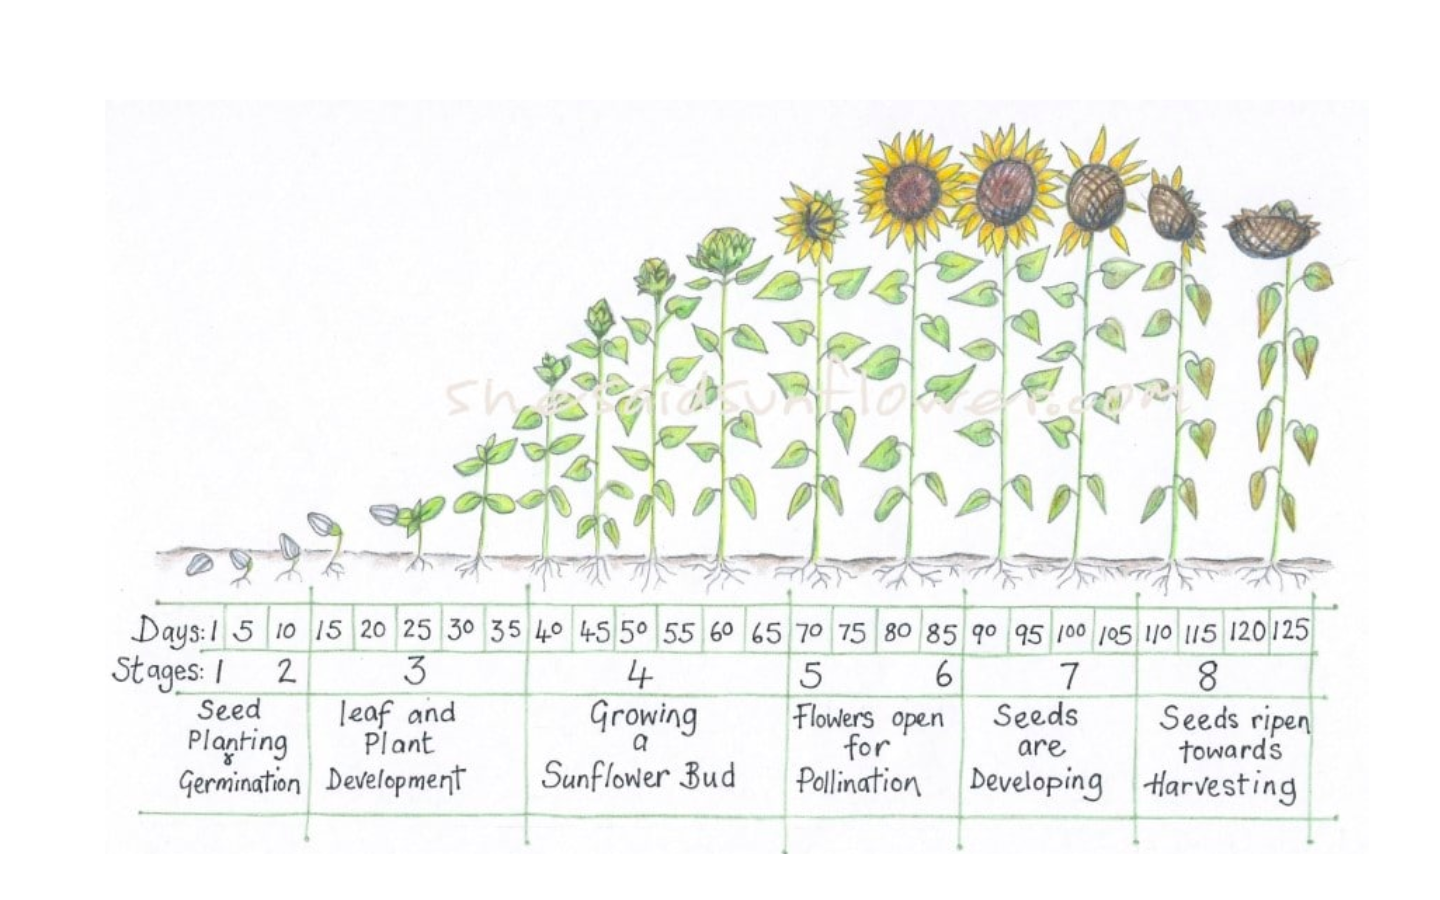 shesaidsunflower.com
Days: 1 5 10 15 20 25 30 35 40 45 50 55 60 65 70 75 80 85 90 95 100 105 110 115 120 125
Stages: 1 2 3 4 5 6 7 8
Seed
Planting
&
Germination
leaf and
Plant
Development
Growing
a
Sunflower Bud
Flowers open
for
Pollination
Seeds
are
Developing
Seeds ripen
towards
Harvesting